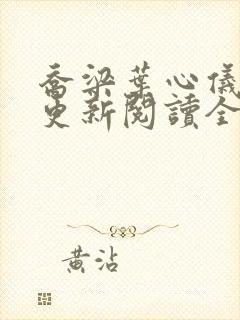 喬梁葉心儀
更新閱讀全
黃沾